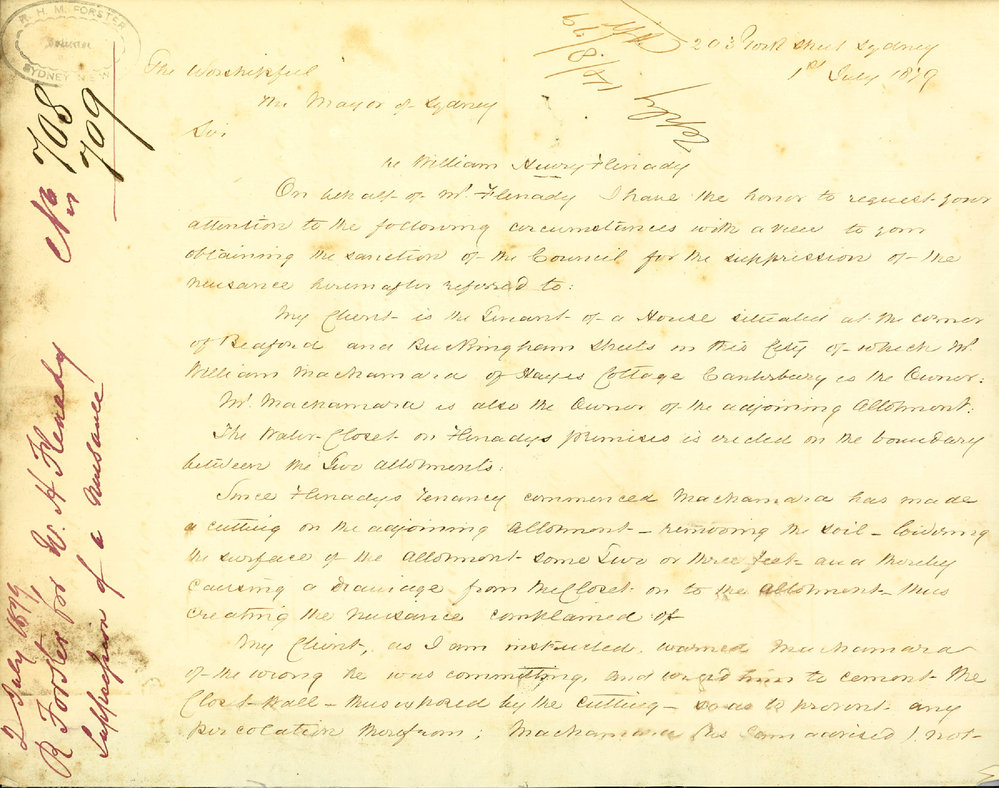 R. H. M. FORSTER
SYDNEY NEW
203 York Street Sydney
1st July 1879
14/8/79
The Worshipful
The Mayor of Sydney
Sir
re William Henry Flenady
On behalf of Mr. Flenady I have the honor to request your
attention to the following circumstances with a view to your
obtaining the sanction of the Council for the suppression of the
nuisance hereinafter referred to:
My Client is the Tenant of a House situated at the corner
of Beaford and Buckingham Streets in this City of which Mr.
William Macnamara of Hayes Cottage Canterbury is the Owner:
Mr. Macnamara is also the Owner of the adjoining Allotment:
The Water Closet on Flenadys premises is erected on the boundary
between the Two allotments:
Since Flenadys Tenancy commenced Macnamara has made
a cutting on the adjoining Allotment – removing the soil – lowering
the surface of the Allotment some Two or three feet and thereby
causing a drainage from the Closet on to the allotment – thus
creating the nuisance complained of
My Client, as I am instructed, warned Macnamara
of the wrong he was committing, and urged him to cement the
Closet Wall – thus exposed by the cutting – so as to prevent any
percolation therefrom; Macnamara (as I am advised) not
No 708
709
2 July 1879
R Forster for W. H Flenady
Suppression of a nuisance